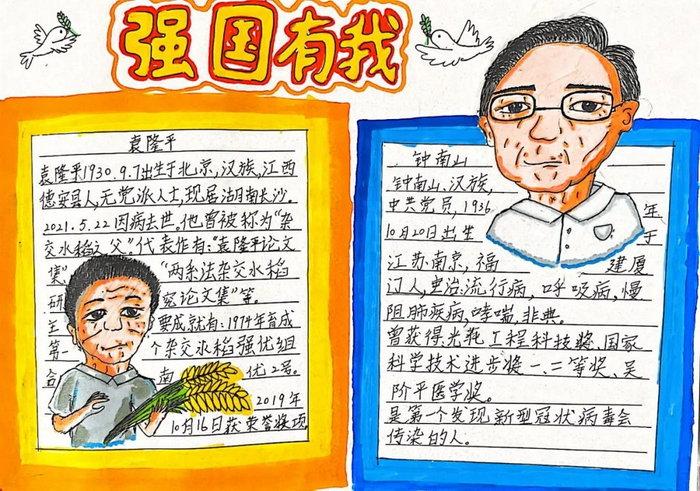 强国有我
袁隆平
袁隆平1930.9.7出生于北京,汉族,江西
德安县人,无党派人士,现居湖南长沙.
2021.5.22因病去世。他曾被称为“杂
交水稻之父”代表作有:“袁隆平论文
集” “两系法杂交水稻
研 究论文集”等。
主 要成就有:1974年育成
第一 个杂交水稻强优组
合 南 优2号。
2019年
10月16日获荣誉奖项
钟南山
钟南山,汉族,
中共党员,1936 年
10月20日出生 于
江苏南京,福 建厦
门人,主治:流行病,呼吸病,慢
阻肺疾病,哮喘,非典。
曾获得光 工程科技奖、国家
科学技术进步奖一、二等奖、吴
阶平医学奖。
是第一个发现新型冠状病毒会
传染的人。